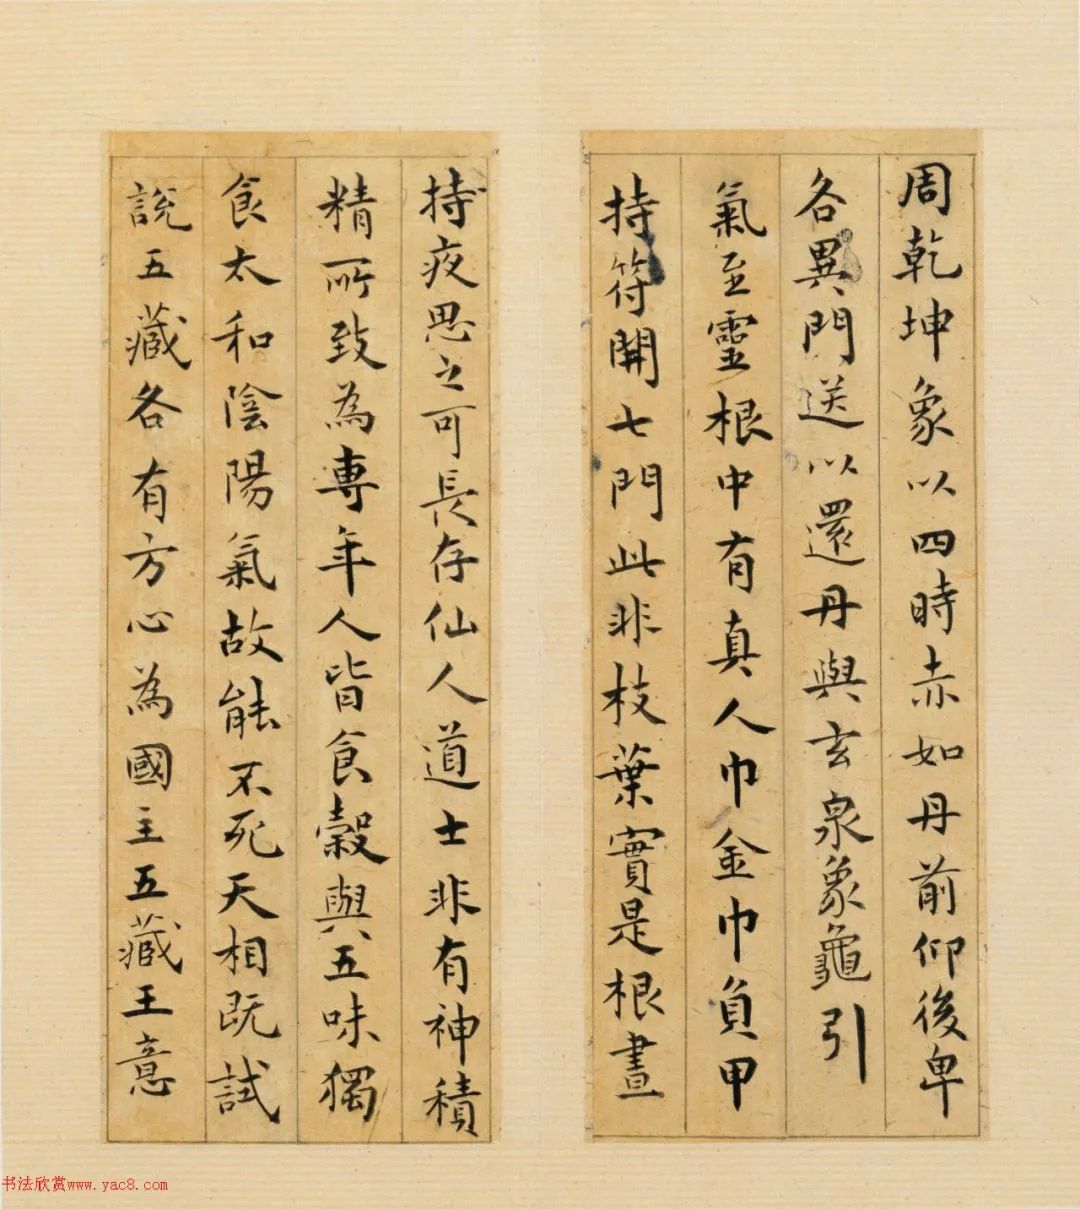 周乾坤象以四時赤如丹前仰後卑
各異門送以還丹與玄泉象龜引
氣至靈根中有真人巾金巾負甲
持符開七門此非枝葉實是根晝
持夜思之可長存仙人道士非有神積
精所致為專年人皆食穀與五味獨
食太和陰陽氣故能不死天相既試
說五藏各有方心為國主五藏王意
书法欣赏www.yac8.com